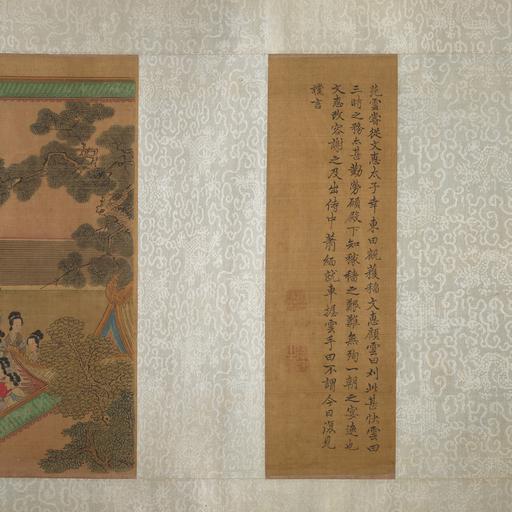 范雲嘗從文惠太子幸東田觀穫稻文惠顧雲曰刈此甚快雲曰
三時之務亦甚勤勞願殿下知稼穡之艱難無殉一朝之宴逸也
文惠改容謝之及出侍中蕭緬就車握雲手曰不謂今日復見
讜言